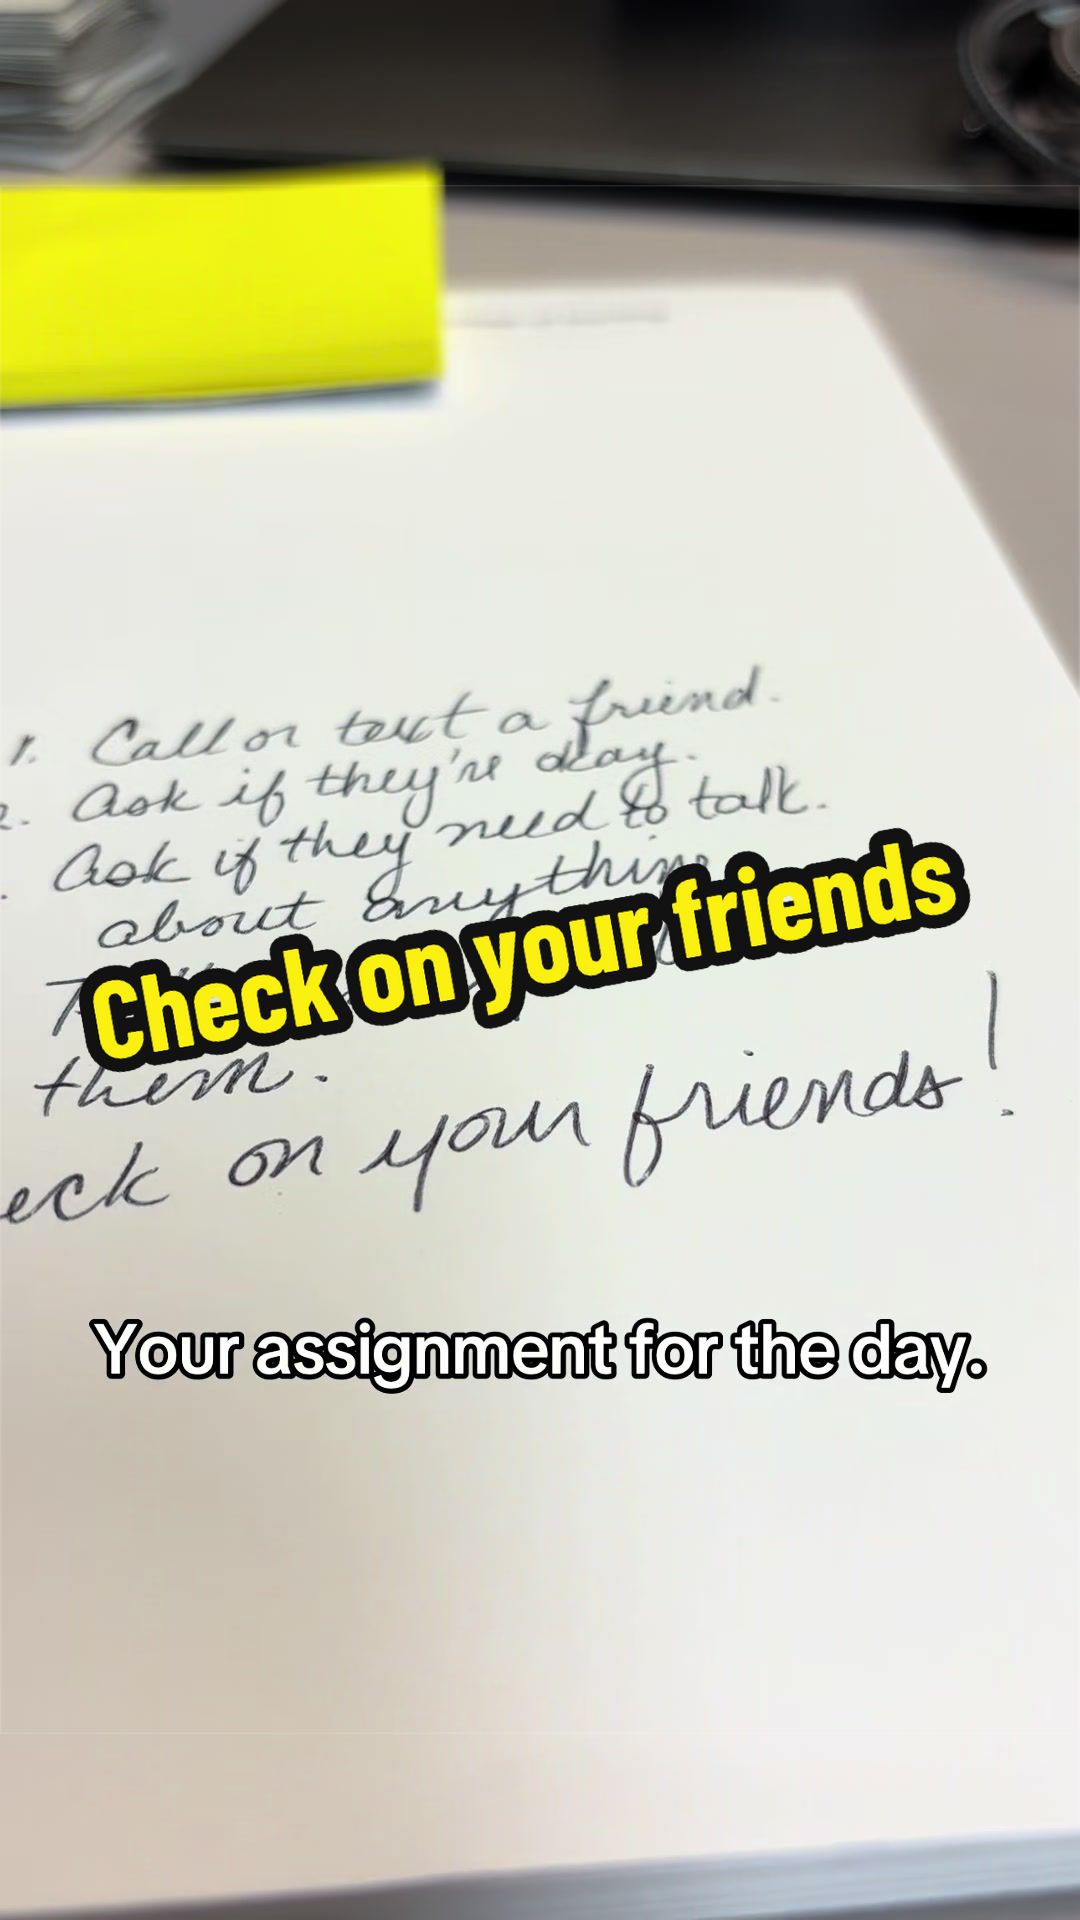 1. Call or text a friend.
2. Ask if they're okay.
. Ask if they need to talk.
about anything
Check on your friends
them.
eck on your friends!
Your assignment for the day.